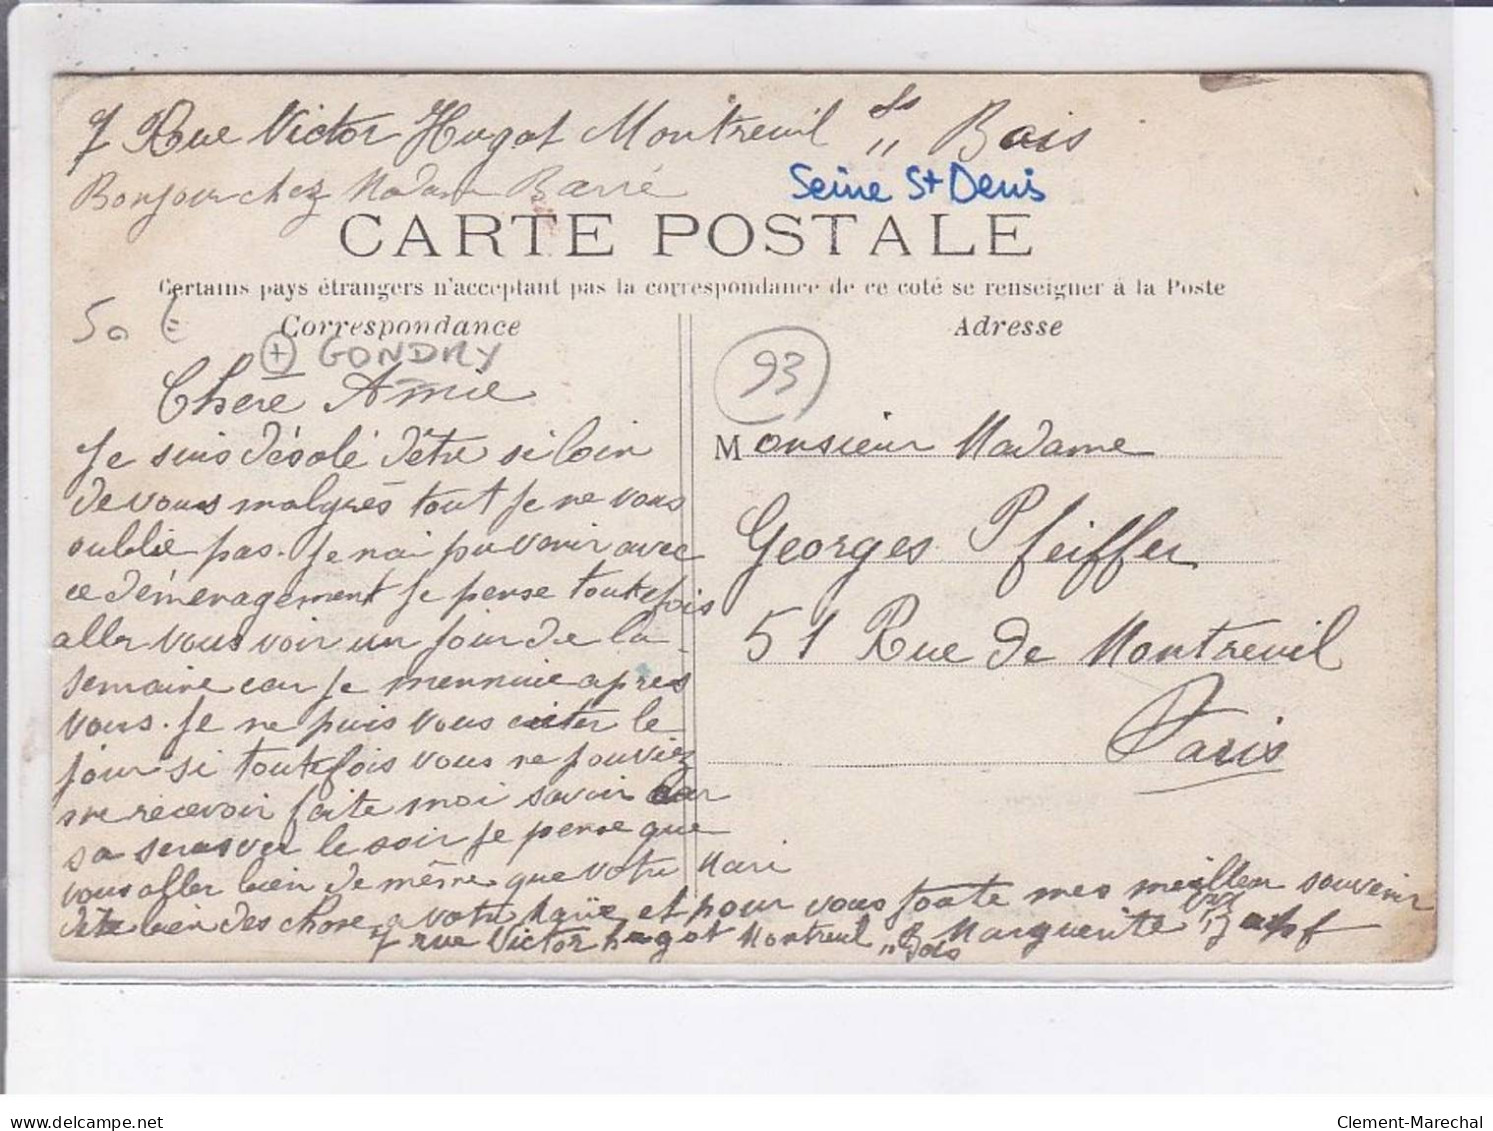 7 Rue Victor Hugot Montreuil s/s Bois
Bonjour chez Madame Barré
Seine St Denis
CARTE POSTALE
Certains pays étrangers n'acceptant pas la correspondance de ce coté se renseigner à la Poste
50 €
Correspondance
+ GONDRY
Chere Amie
Je suis désolé d'être si loin
de vous malgrès tout je ne vous
oublie pas. Je nai pu venir avec
ce déménagement je pense toutefois
aller vous voir un jour de la
semaine car je mennuie apres
vous. Je ne puis vous citer le
jour si toutefois vous ne pouviez
me recevoir faite moi savoir car
sa seras ver le soir je pense que
vous aller bien de même que votre Mari
dite bien des chose a votre et pour vous toute mes meilleur souvenir
Marguerite
7 rue Victor hugot Montreuil s/s Bois
Adresse
93
Monsieur Madame
Georges Pfeiffer
51 Rue de Montreuil
Paris
delcampe.net
Clement-Marechal